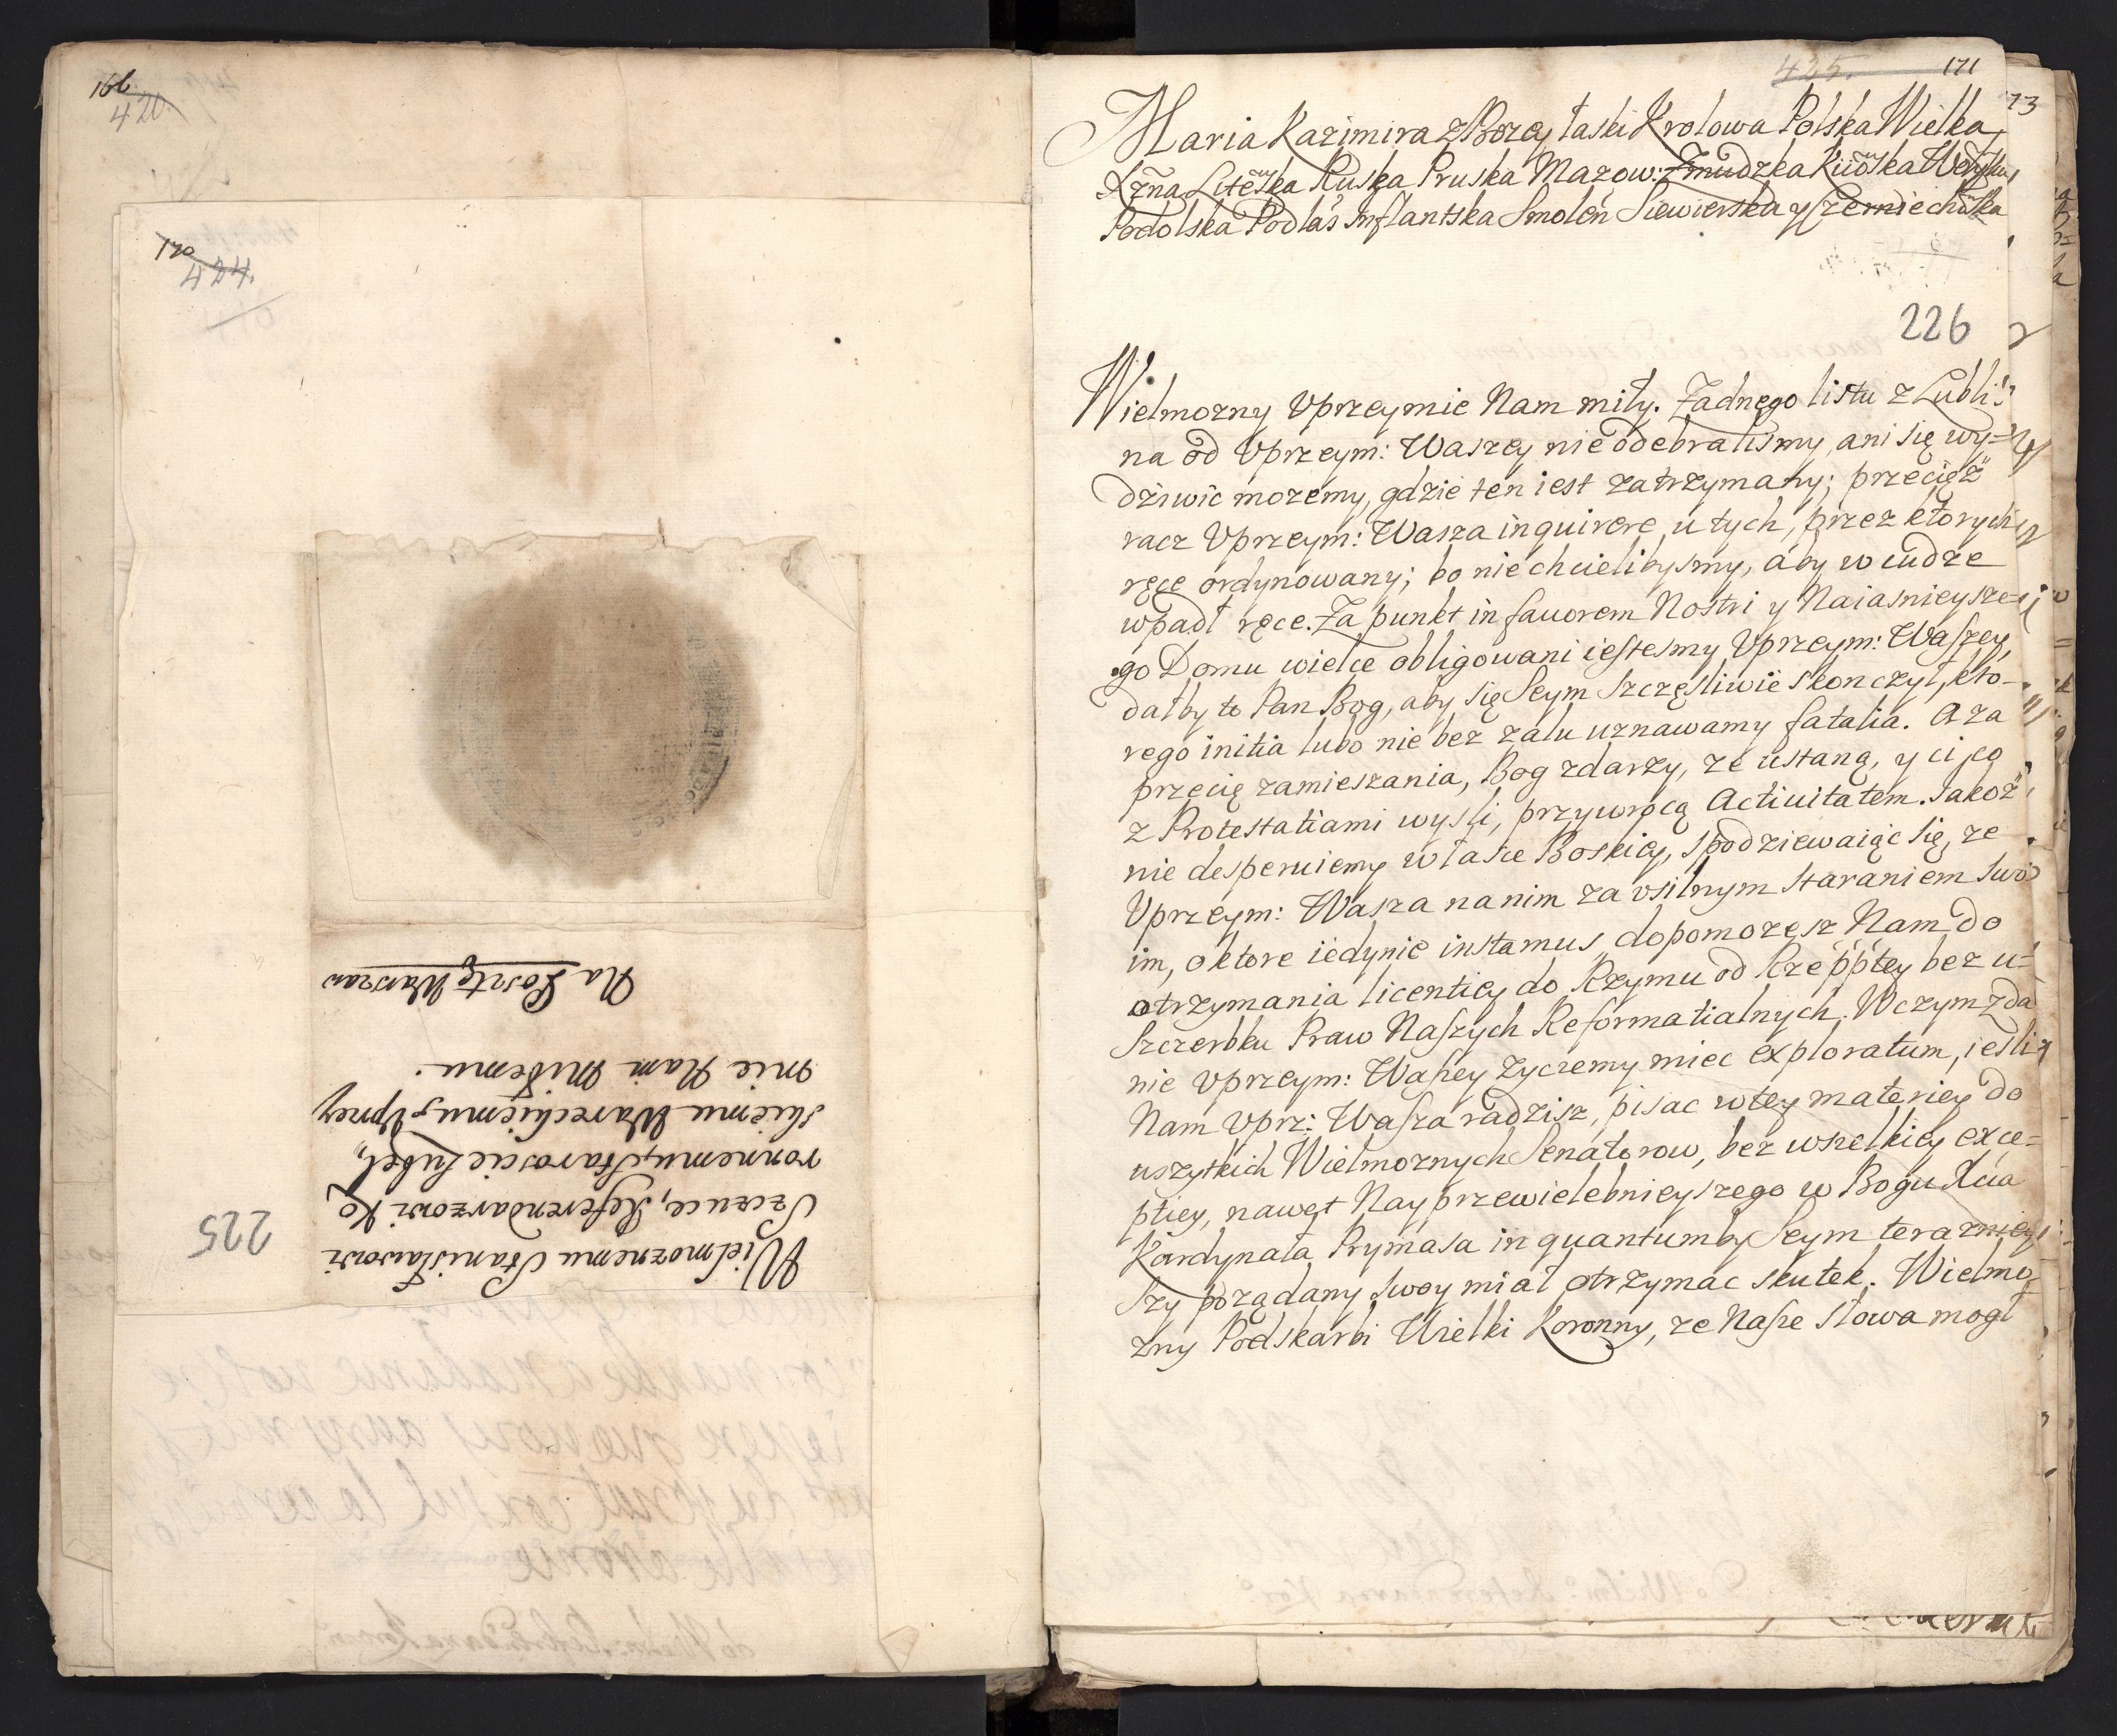 166
420.
170
424.
Na Posztę Warszaw
Wielmoznemu Stanisławowi
Szczuce, Referendarzowi Ko
ronnemu, Staroscie Lubel,
skiemu Wareckiemu, Uprzey
mie Nam Miłemu.
225
425. 171
73
Maria Kazimira z Bozey łaski Krolowa Polska Wielka
Xzna Litewska Ruska Pruska Mazow: Zmudzka Kiiowska Wołyńska
Podolska Podlas Inflantska Smolen Siewierska y Czerniechowska
226
Wielmozny Vprzeymie Nam miły. Zadnego listu z Lubli=
na od Vprzeym: Waszey nie odebralismy, ani się wy=
dziwic mozemy, gdzie ten iest zatrzymany; przecięż
racz Vprzeym: Wasza inquirere u tych, przez ktorych
ręce ordynowany; bo nie chcielibysmy, aby w cudze
wpadł ręce. Za punkt in fauorem Nostri y Naiasnieysze=
go Domu wielce obligowani iestesmy Vprzeym: Waszey,
dałby to Pan Bog, aby się Seym szczęsliwie skonczył, kto-
rego initia lubo nie bez zalu uznawamy fatalia. Aza
przecię zamieszania, Bog zdarzy, ze ustaną, y ci co
z Protestatiami wyszli, przywrocą Actiuitatem. Jakoż
nie desperuiemy w łasce Boskiey, spodziewaiąc się, ze
Vprzeym: Wasza na nim za vsilnym staraniem swo
im, o ktore iedynie instamus, dopomozesz Nam do
otrzymania licentiey do Rzymu od Rzepptey bez u=
szczerbku Praw Naszych Reformatialnych. W czym zda
nie Vprzeym: Waszey zyczemy miec exploratum, iesli
Nam Vprz: Wasza radzisz, pisac w tey materiey do
uszytkich Wielmoznych Senatorow, bez wszelkiey exce=
ptiey, nawet Nayprzewielebnieyszego w Bogu Xcia
Kardynała Prymasa in quantum by Seym terazniey
szy poządany swoy miał otrzymac skutek. Wielmo
zny Podskarbi Wielki Koronny, ze Nasze słowa mogł